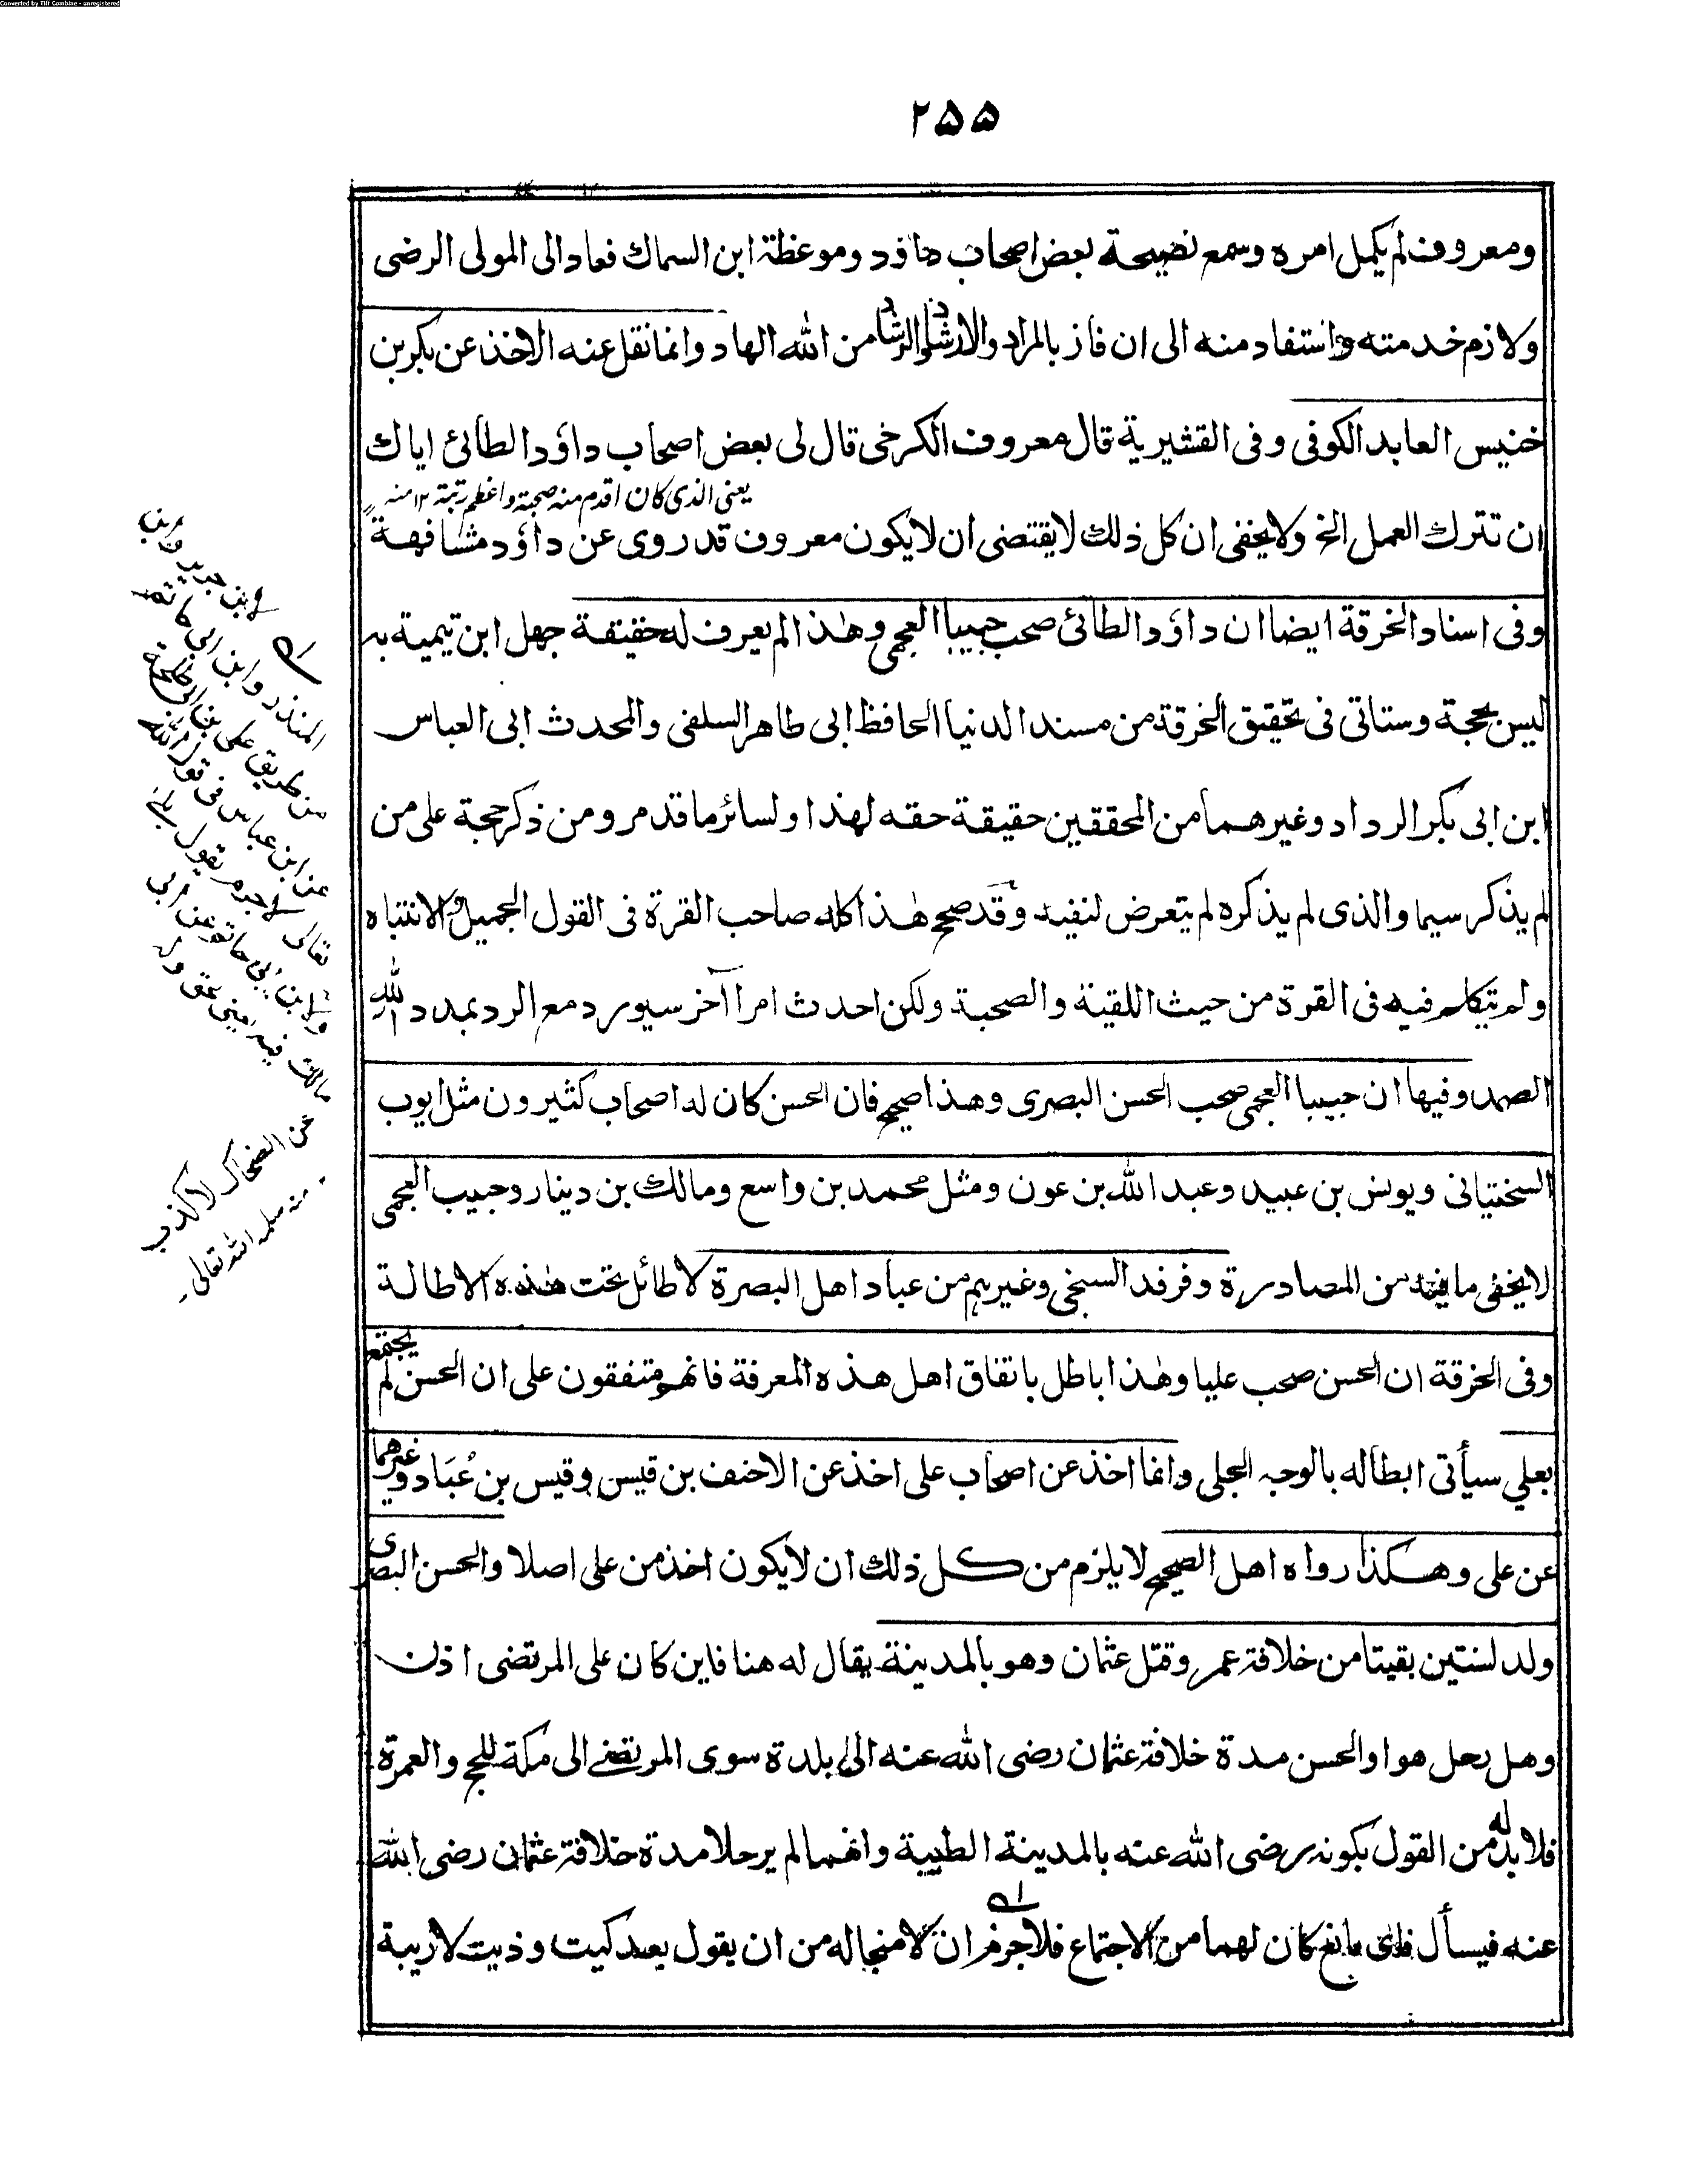 Converted by Tiff Combine - unregistered
٢٥٥
ومعروف لم يكمل امره وسمع نصيحة بعض اصحاب داؤد وموعظة ابن السماك فعاد الى المولى الرضى
ولازم خدمته واستفاد منه الى ان فاز بالمراد والارشاد والرشاد من الله الهاد وانما نقل عنه الاخذ عن بكر بن
خنيس العابد الكوفى وفى القشيرية قال معروف الكرخى قال لى بعض اصحاب داؤد الطائى اياك
يعنى الذى كان اقدم منه صحبة واعظم رتبة ١٢ منه
ان تترك العمل الخ ولا يخفى ان كل ذلك لا يقتضى ان لا يكون معروف قد روى عن داؤد مشافهة
وفى اسناد الخرقة ايضا ان داؤد الطائى صحب حبيبا العجمى وهذا لم يعرف له حقيقة جهل ابن تيمية به
ليس بحجة وستاتى فى تحقيق الخرقة من مسند الدنيا الحافظ ابى طاهر السلفى والمحدث ابى العباس
ابن ابى بكر الرداد وغيرهما من المحققين حقيقة حقه لهذا ولسائر ما قد مر ومن ذكر حجة على من
لم يذكر سيما والذى لم يذكره لم يتعرض لنفيه وقد صحح هذا كله صاحب القرة فى القول الجميل والانتباه
ولم يتكلم فيه فى القرة من حيث اللقية والصحبة ولكن احدث امرا آخر سيورد مع الرد بمدد الله
الصمد وفيها ان حبيبا العجمى صحب الحسن البصرى وهذا صحيح فان الحسن كان له اصحاب كثيرون مثل ايوب
السختيانى ويونس بن عبيد وعبد الله بن عون ومثل محمد بن واسع ومالك بن دينار وحبيب العجمى
لا يخفى ما فيه من المصادرة وفرقد السبخى وغيرهم من عباد اهل البصرة لا طائل تحت هذه الاطالة
وفى الخرقة ان الحسن صحب عليا وهذا باطل باتفاق اهل هذه المعرفة فانهم متفقون على ان الحسن لم يجتمع
بعلي سيأتى ابطاله بالوجه الجلى وانما اخذ عن اصحاب على اخذ عن الاحنف بن قيس وقيس بن عُبَاد وغيرهما
عن على وهكذا رواه اهل الصحيح لا يلزم من كل ذلك ان لا يكون اخذ من على اصلا والحسن البصرى
ولد لسنتين بقيتا من خلافة عمر وقتل عثمان وهو بالمدينة يقال له هنا فاين كان على المرتضى اذن
وهل رحل هو او الحسن مدة خلافة عثمان رضى الله عنه الى بلدة سوى المرتضى الى مكة للحج والعمرة
فلا بد له من القول بكونه رضى الله عنه بالمدينة الطيبة وانهما لم يرحلا مدة خلافة عثمان رضى الله
عنه فيسأل فاى مانع كان لهما من الاجتماع فلا جرم ان لا منجا له من ان يقول بعد كيت وذيت لا ريبة
لابن جرير وابن
المنذر وابن ابى حاتم
من طريق على بن ابى طلحة
عن ابن عباس فى قول الله
تعالى لا جرم يقول بلى
ولابن ابى حاتم عن ابى
مالك
عن الضحاك لا كذب
منه سلمه الله تعالى